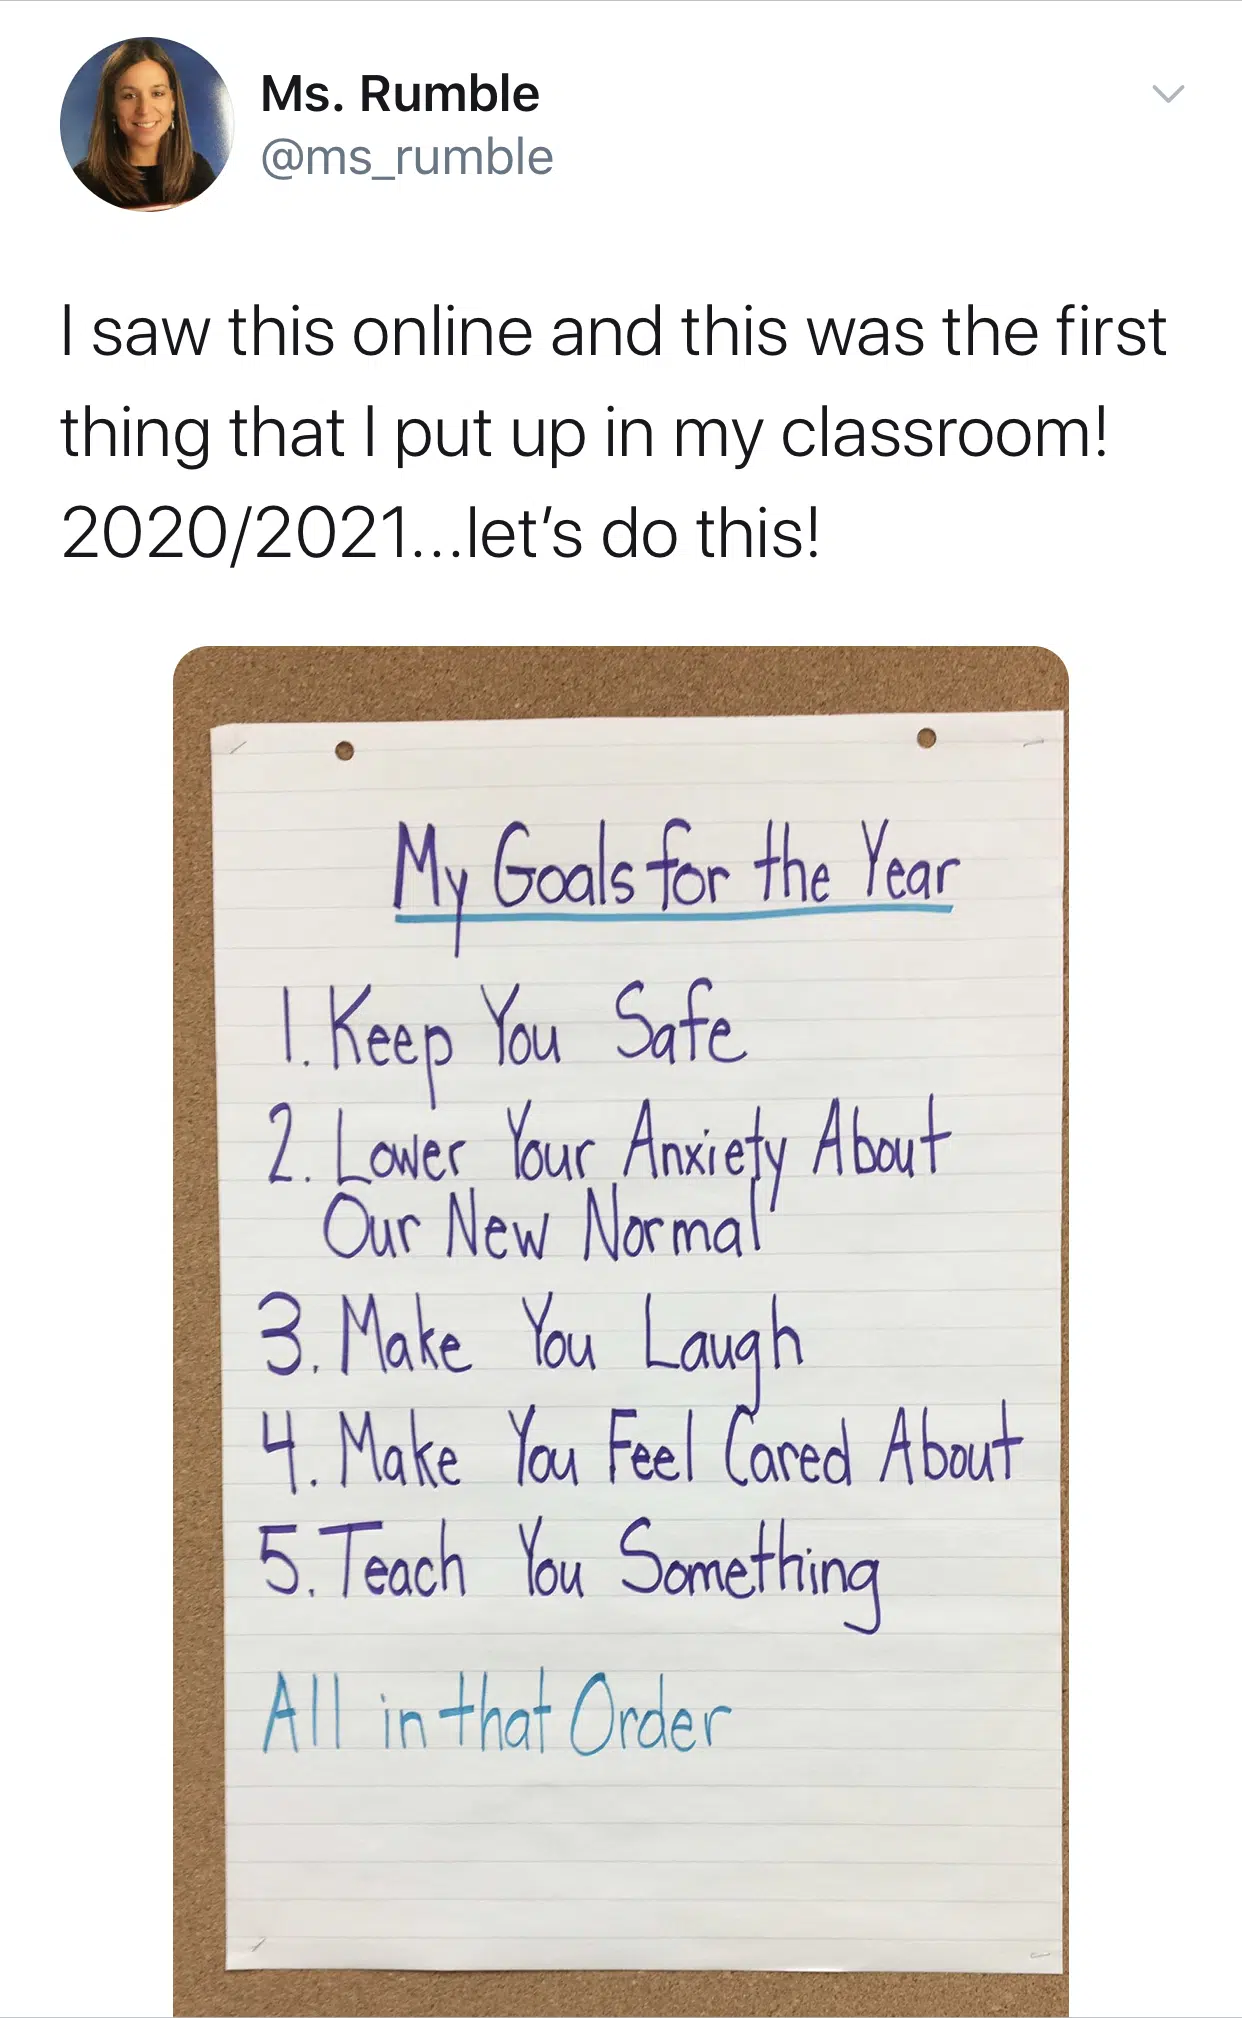 Ms. Rumble
@ms_rumble
I saw this online and this was the first
thing that I put up in my classroom!
2020/2021...let’s do this!
My Goals for the Year
1. Keep You Safe
2. Lower Your Anxiety About
Our New Normal
3. Make You Laugh
4. Make You Feel Cared About
5. Teach You Something
All in that Order